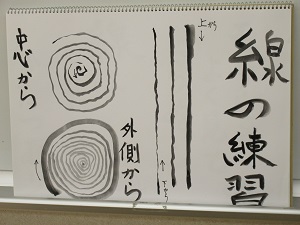 線の練習
上から
下から
中心から
外側から